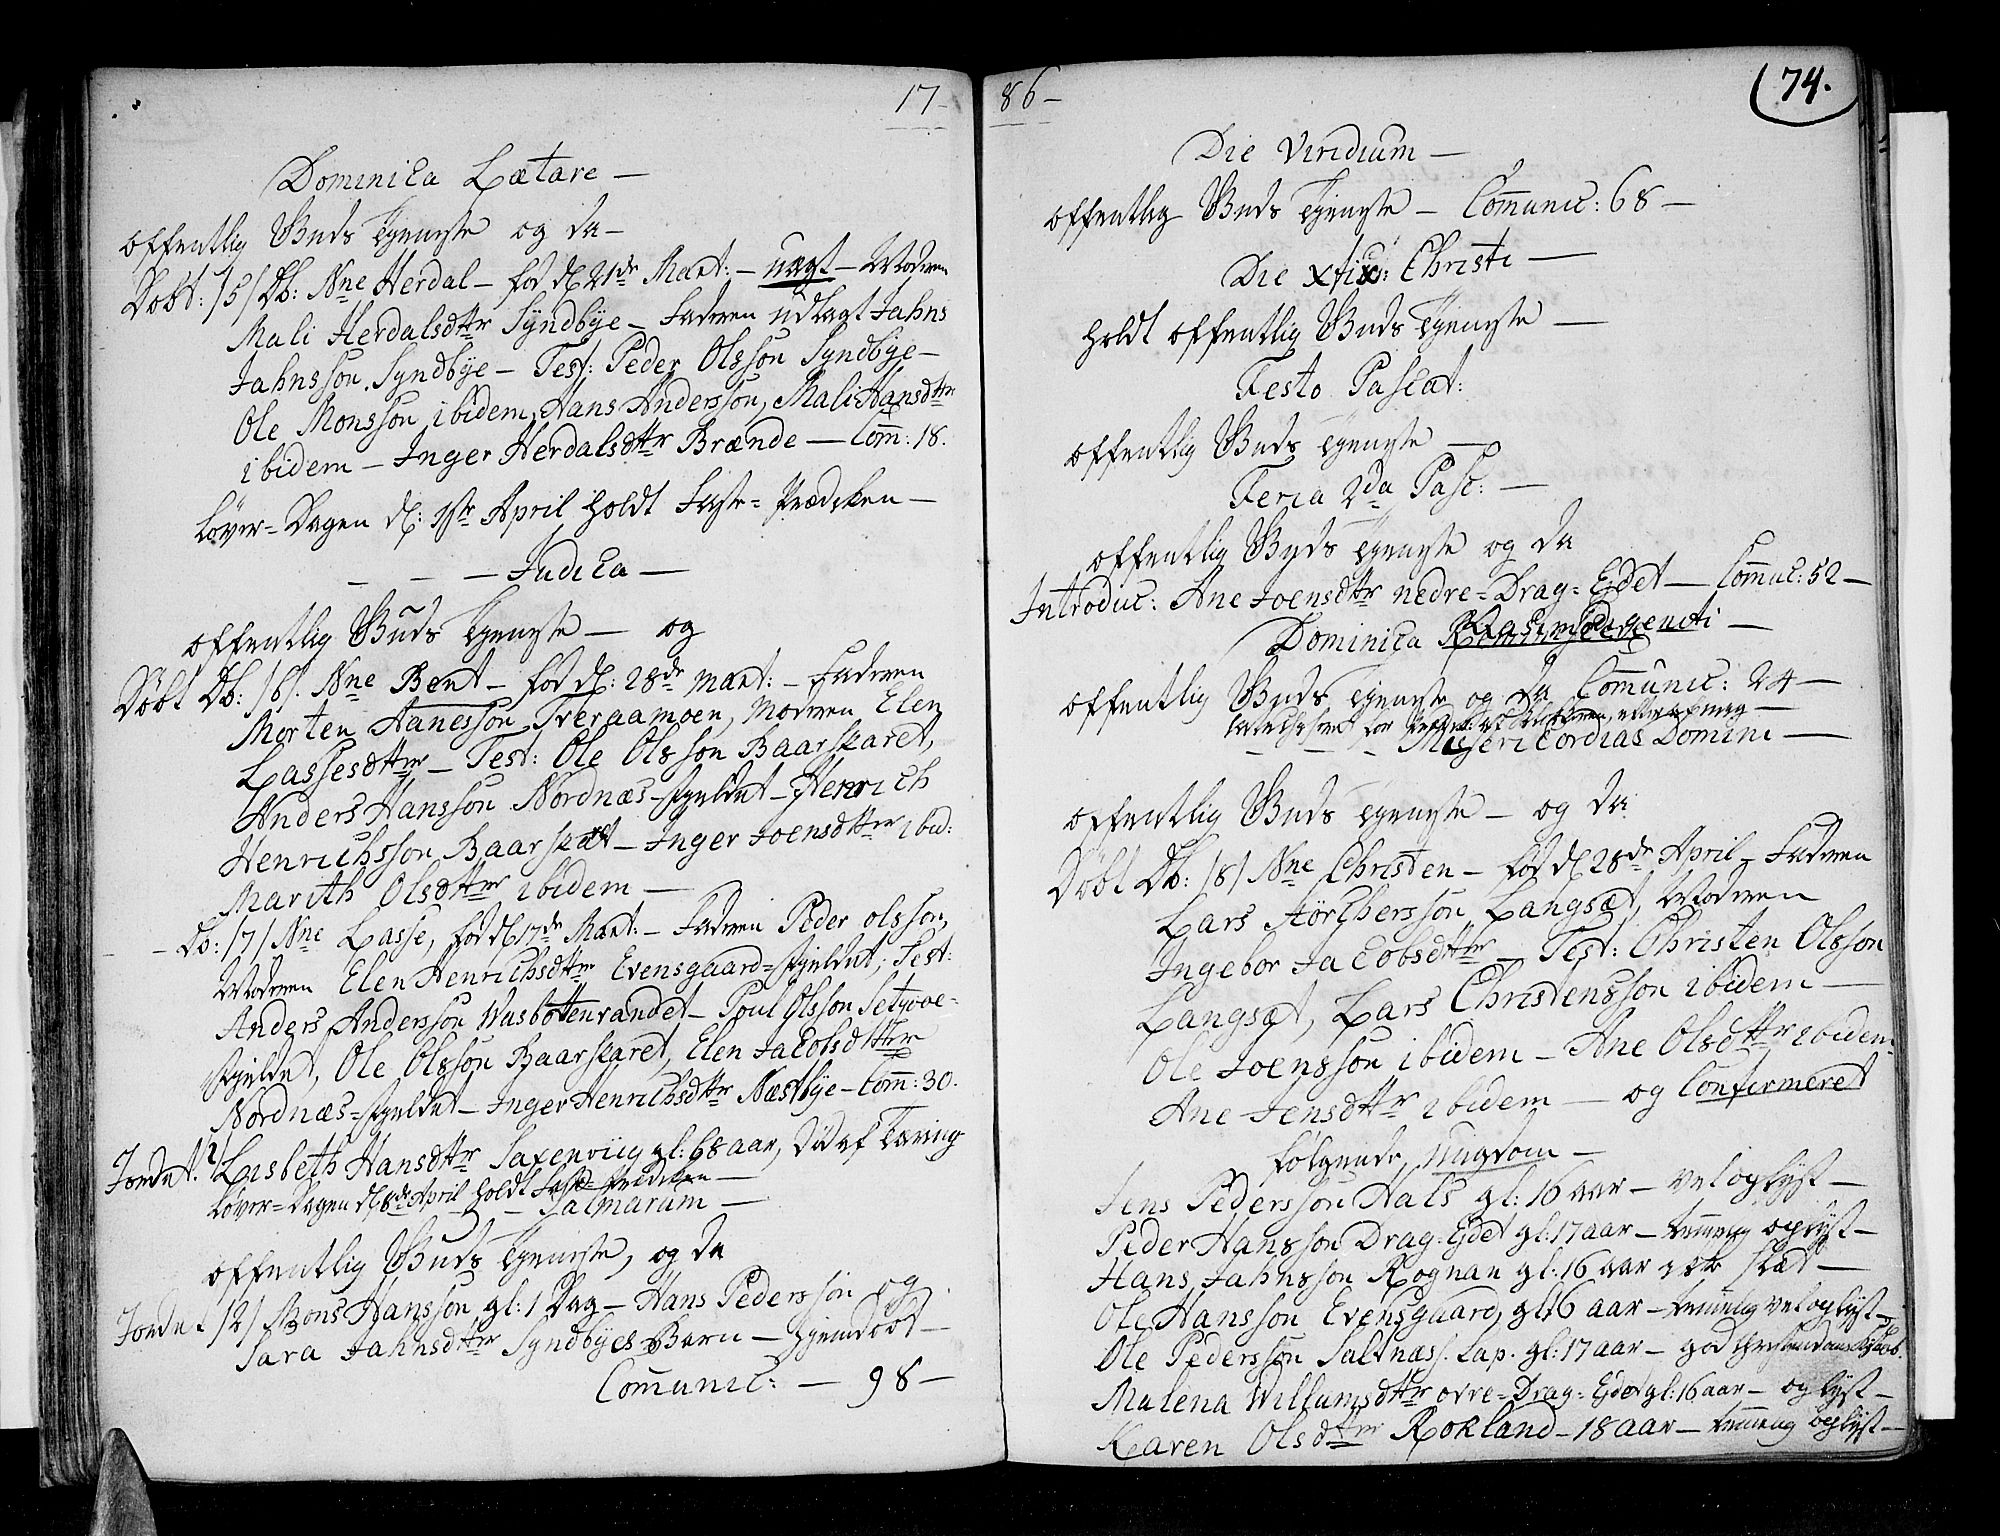 17-
Dominica Lætare —
offentlig Guds Tieneste og da —
Døbt: /5/ Db: Nne Herdal – fød d 21de Mart: – uægt – Modren
Mali Herdalsdttr Syndbye – Fadren udlagt Jahns
Jahnsson Syndbye – Test: Peder Olsson Syndbye –
Ole Monsson ibidem, Hans Andersson, Mali Hansdttr
ibidem – Inger Herdalsdttr Brænde — Com: 18.
Løver-Dagen d: 1ste April holdt Faste-Prædiken —
— — — Judica —
offentlig Guds Tieneste — og
Døbt Db: /6/. Nne Bent – fød d: 28de Mart: – Fadren
Morten Hanesson Tveraamoen, Modren Elen
Lassesdttr – Test: Ole Olsson Baarskaret,
Anders Hansson Nordnæs-fieldet – Henrich
Henrichsson Baarskaret – Inger Joensdttr ibid:
Marith Olsdttr ibidem —
– Db: /7/ Nne Lasse, fød d 17de Mart: – Fadren Peder Olsson,
Modren Elen Henrichsdttr Evensgaard-fieldet; Test:
Anders Andersson Wasbottenvandet – Poul Olsson Setyove-
fieldet, Ole Olsson Baarskaret, Elen Jacobsdttr
Nordnæs-fieldet – Inger Henrichsdttr Næstbye – Com: 30.
Jordet. 1/ Lisbeth Hansdttr Saxenviig gl: 68 aar, død af Tæring
Løver-Dagen d 8de April holdt Faste-Prædiken —
— Palmarum —
offentlig Guds Tieneste, og da
Jordet /2/ Mons Hansson gl: 1 Dag – Hans Pedersson og
Sara Jahnsdttr Syndbyes Barn — hiemdøbt —
Comunic: — 98 —
86 –
74.
Die Viridium —
offentlig Guds Tieneste — Communic: 68 —
Die Christi —
holdt offentlig Guds Tieneste —
Festo Pascat:
offentlig Guds Tieneste —
Feria 2da Pasc: —
offentlig Guds Tieneste og da
Introduc: Ane Joensdttr nedre-Drag-Eidet — Commuc: 52 —
Dominica Quasimodogeniti —
offentlig Guds Tieneste og da Comunic: 24 —
— — — Misericordias Domini —
offentlig Guds Tieneste — og da
Døbt Db: /8/ Nne Christen – fød d 28de April – Fadren
Lars Jörchersson Langsæt, Modren
Ingebor Jacobsdttr – Test: Christen Olsson
Langsæt, Lars Christensson ibidem —
Ole Joensson ibidem – Ane Olsdttr ibidem
Ane Jensdttr ibidem — og Confirmeret
følgende Ungdom —
Jens Pedersson Hals gl: 16 aar — vel oplyst —
Peder Hansson Drag-Eidet gl: 17 aar — temmelig oplyst —
Hans Jahnsson Rognan gl: 16 aar slæt —
Ole Hansson Evensgaard, gl: 16 aar — temmelig vel oplyst —
Ole Pedersson Saltnæs. Lap. gl: 17 aar — god
Malena Willumsdttr ovre-Drag-Eidet gl: 16 aar — oplyst —
Karen Olsdttr Rokland – 18 aar — temmelig oplyst —